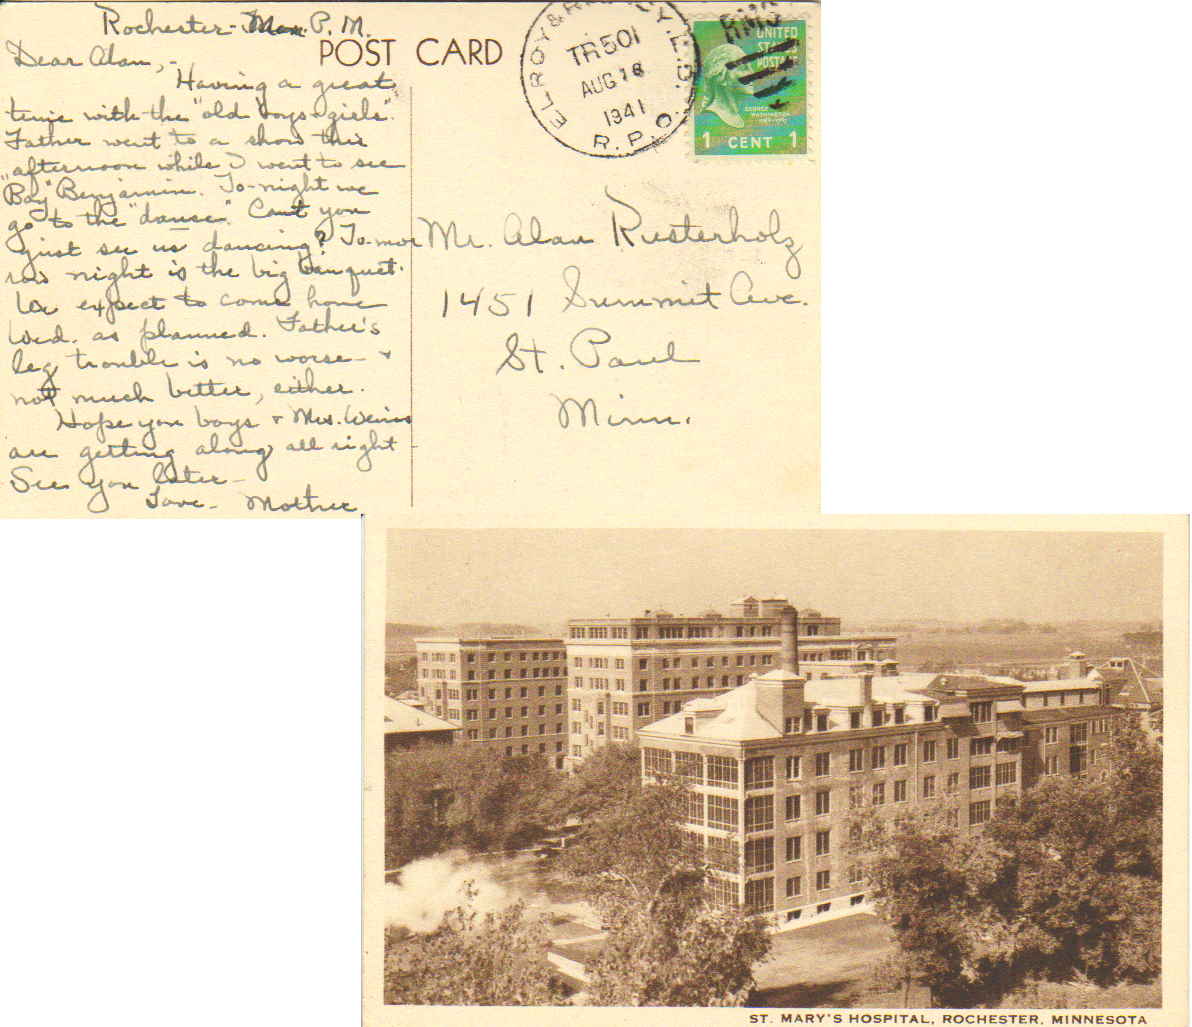 Rochester - Mon. P. M.
Dear Alan, -
Having a great
time with the "old boys & girls".
Father went to a show this
afternoon while I went to see
"Bay" Benjamin. To-night we
go to the "danse". Can't you
just see us dancing? To-mor
row night is the big banquet.
We expect to come home
Wed. as planned. Father's
leg trouble is no worse - &
not much better, either.
Hope you boys & Mrs. Weiss
are getting along all right
See you later -
Love - Mother
POST CARD
ELROY & R
TR 501
AUG 18
1941
R. P. O.
RMS
UNITED
STATES
POSTAGE
GEORGE
WASHINGTON
1 CENT 1
Mr. Alan Rusterholz
1451 Summit Ave.
St. Paul
Minn.
ST. MARY'S HOSPITAL, ROCHESTER, MINNESOTA